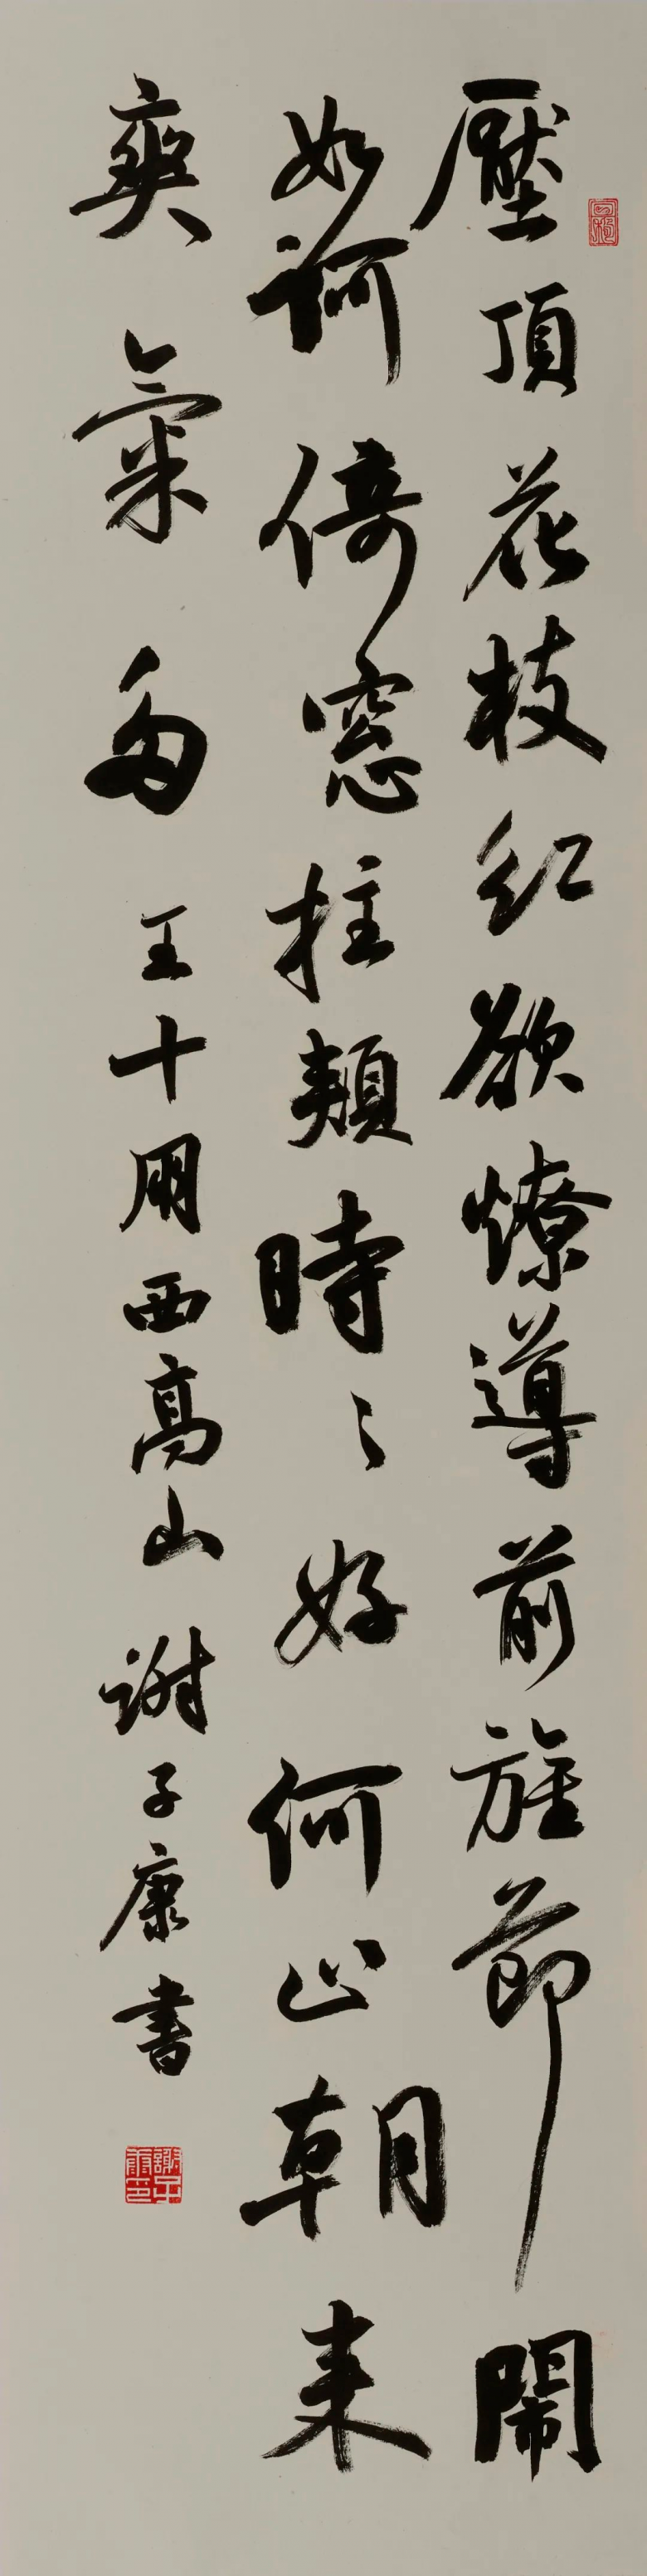 壓頂花枝紅欲燎導前旌節鬧
如何倚窓拄頰時〻好何必朝来
爽氣多 王十朋西高山 謝子康書
謝子康印